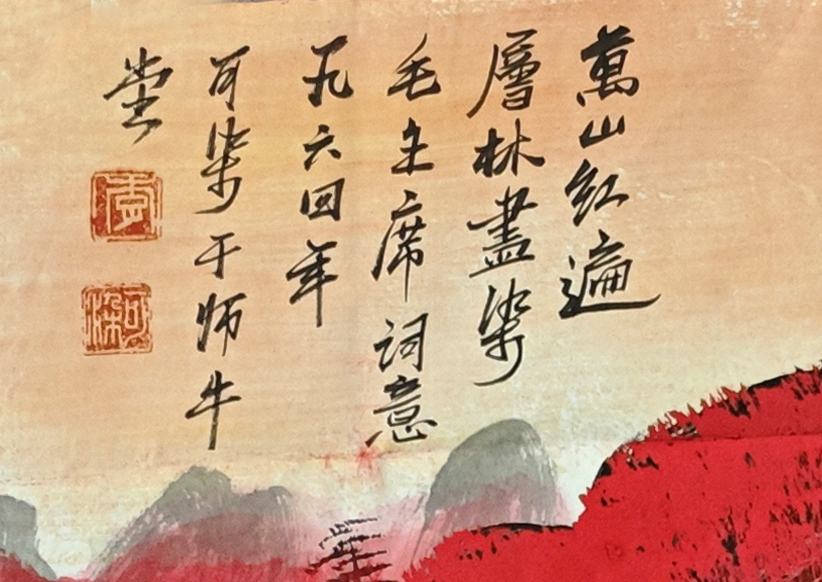 萬山红遍
層林盡染
毛主席词意
一九六四年
可染于师牛
堂
李
可染